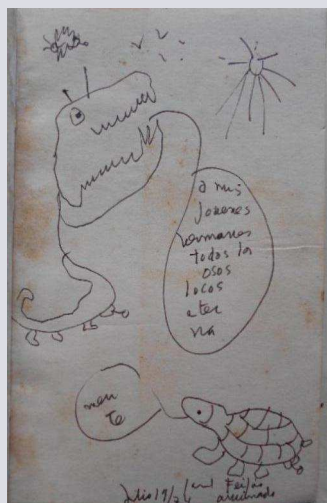 a mis
jovenes
hermanos
todos los
osos
locos
eter
na
men
te
Julio 19/76 Feijoo